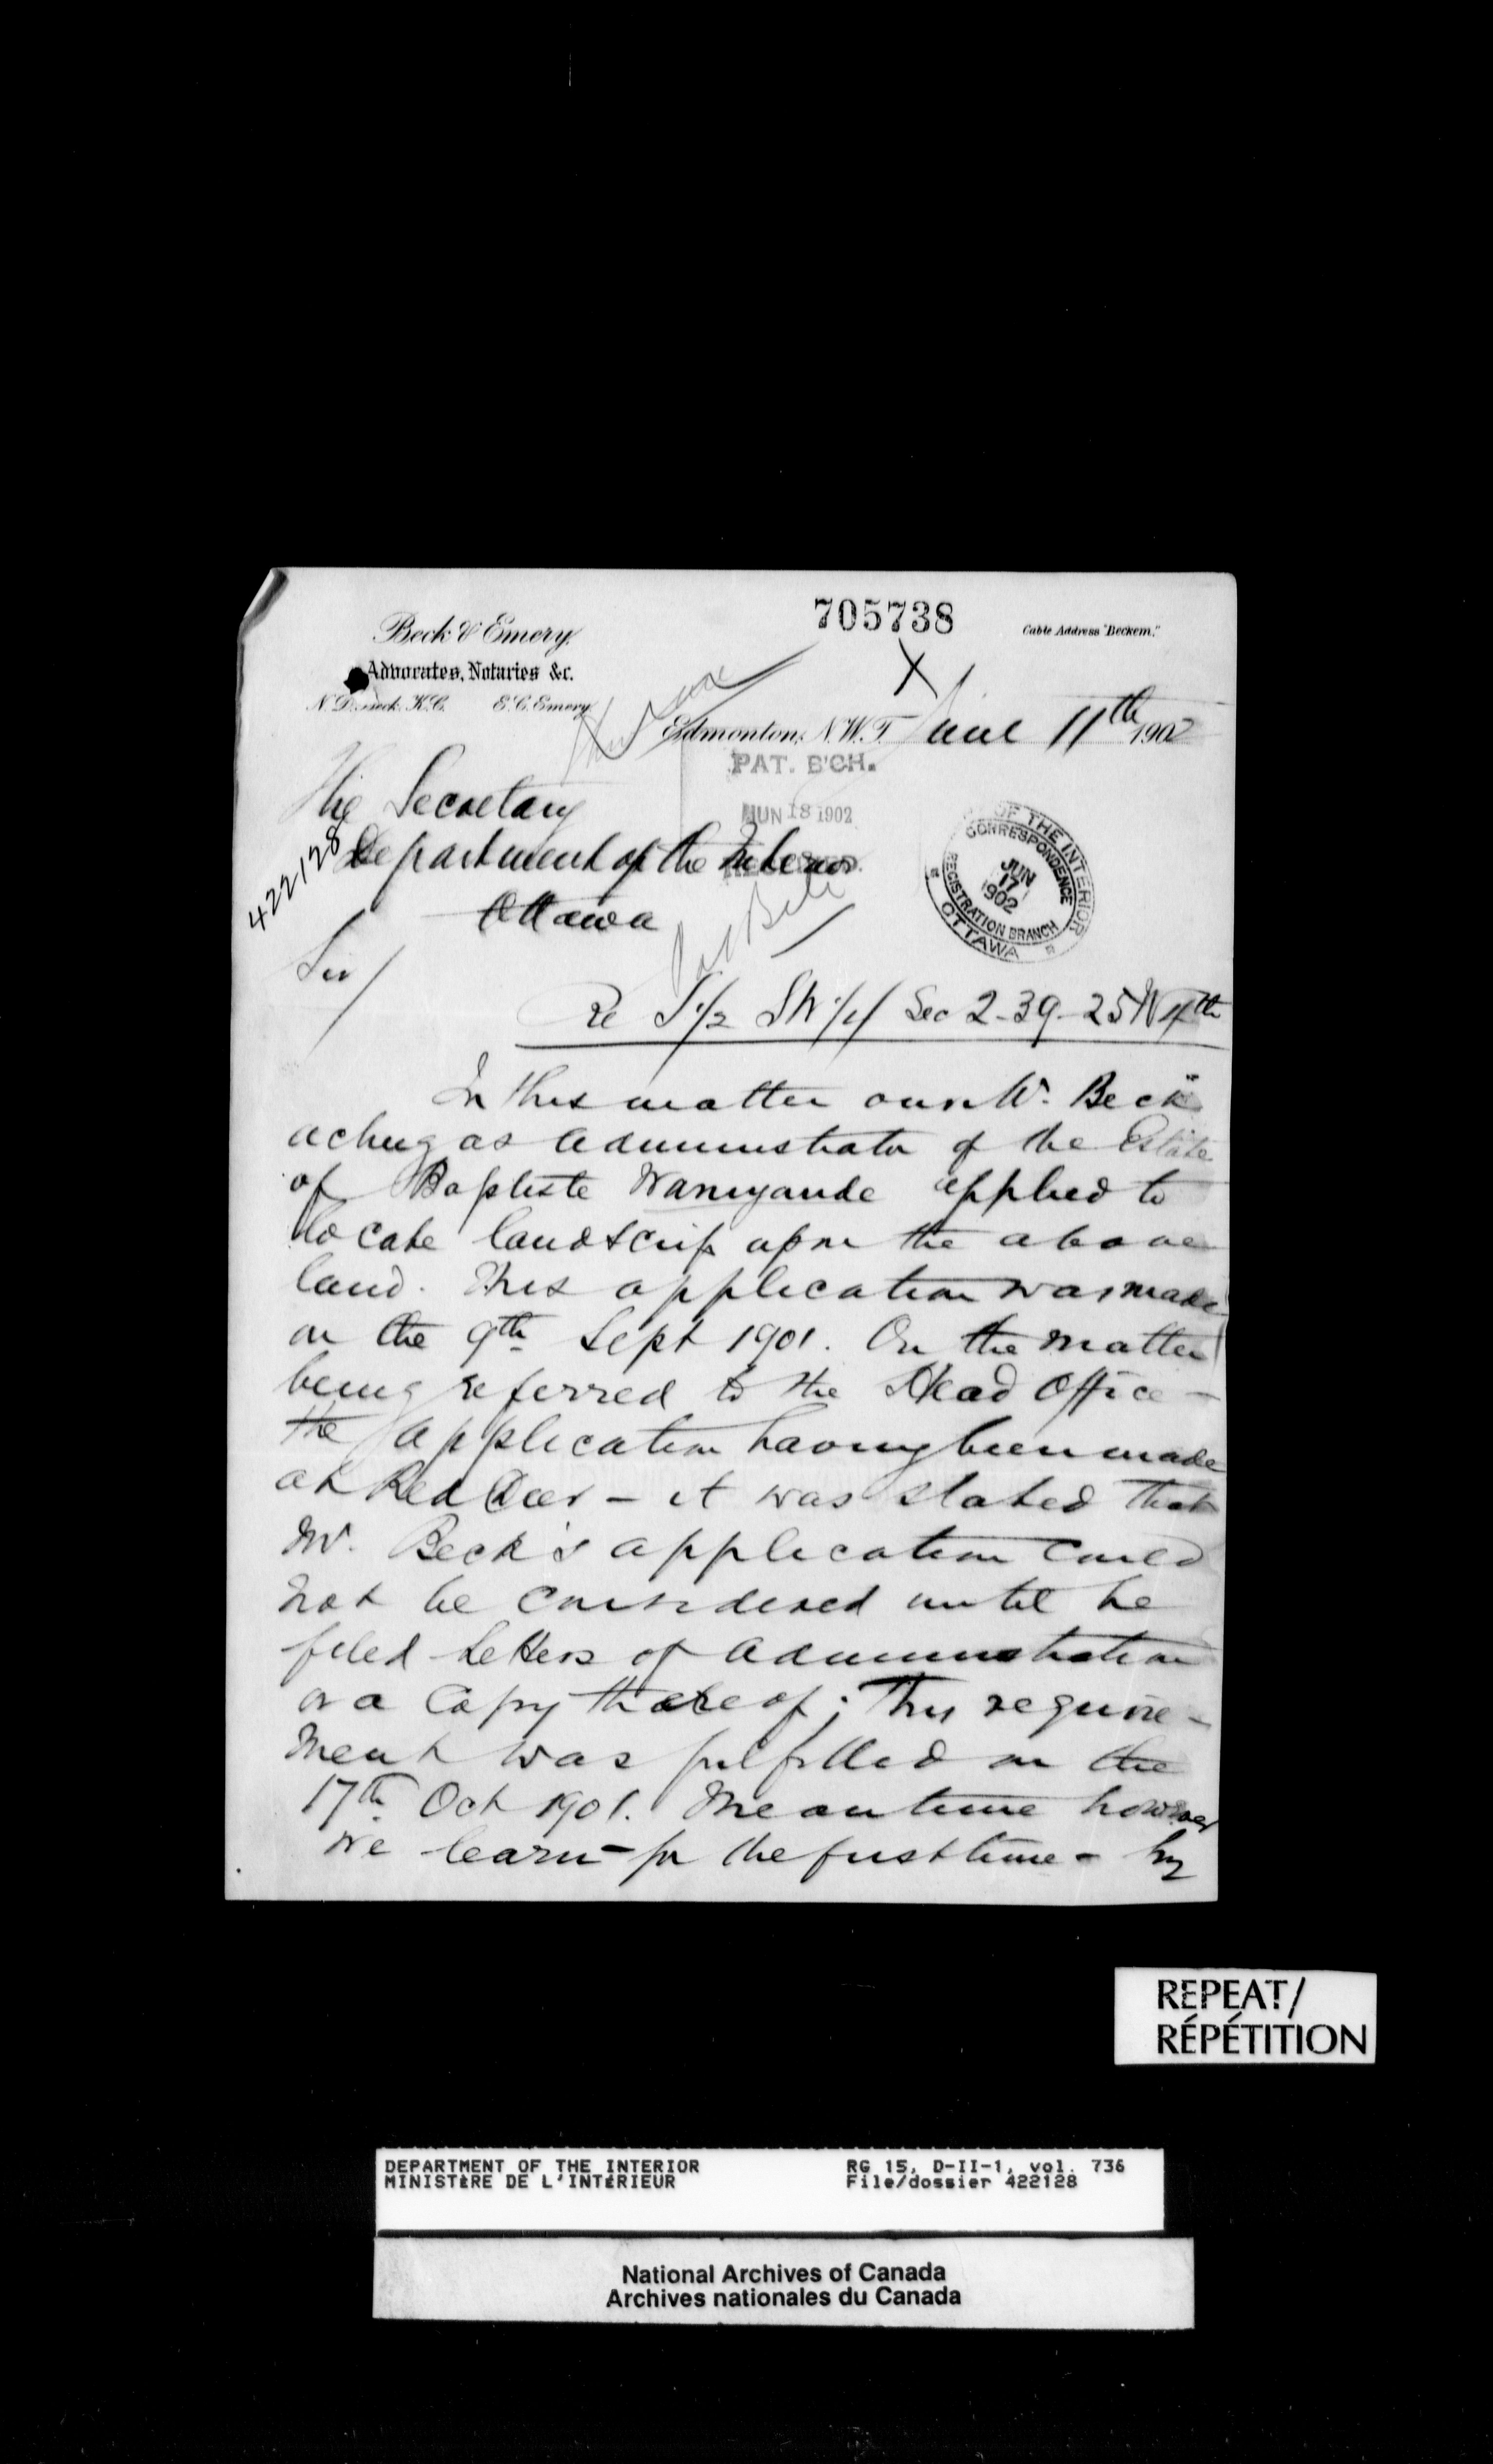 705738
Beck & Emery.
Cable Address "Beckem."
Advocates, Notaries &c.
N. D. Beck. K.C. E. C. Emery.
Edmonton, N.W.T. June 11th 1902
PAT. B'CH.
JUN 18 1902
The Secretary
Department of the Interior
422128
Ottawa
OF THE INTERIOR
CORRESPONDENCE
JUN
17
1902
REGISTRATION BRANCH
OTTAWA
Sir/
Re S 1/2 SW 1/4 Sec 2-39-25 W 4th
In this matter our Mr. Beck
acting as administrator of the Estate
of Baptiste Wanyande applied to
locate land scrip upon the above
land. This application was made
on the 9th Sept 1901. On the matter
being referred to the Head Office -
the application having been made
at Red Deer - it was stated that
Mr. Beck's application could
not be considered until he
filed Letters of administration
or a copy thereof; This require-
ment was fulfilled on the
17th Oct 1901. Meantime however
we learn - for the first time - by
REPEAT/
RÉPÉTITION
DEPARTMENT OF THE INTERIOR RG 15, D-II-1, vol. 736
MINISTÈRE DE L'INTÉRIEUR File/dossier 422128
National Archives of Canada
Archives nationales du Canada